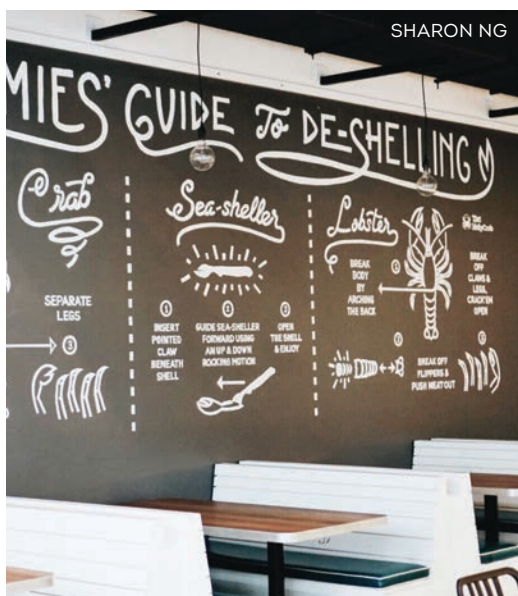 SHARON NG
MIES' GUIDE To DE-SHELLING
Crab
SEPARATE
LEGS
3
Sea-sheller
1
INSERT
POINTED
CLAW
BENEATH
SHELL
2
GUIDE SEA-SHELLER
FORWARD USING
AN UP & DOWN
ROCKING MOTION
3
OPEN
THE SHELL
& ENJOY
Lobster
BREAK
BODY
BY
ARCHING
THE BACK
1
BREAK
OFF
CLAWS &
LEGS,
CRACK'EM
OPEN
2
BREAK OFF
FLIPPERS &
PUSH MEAT OUT
3